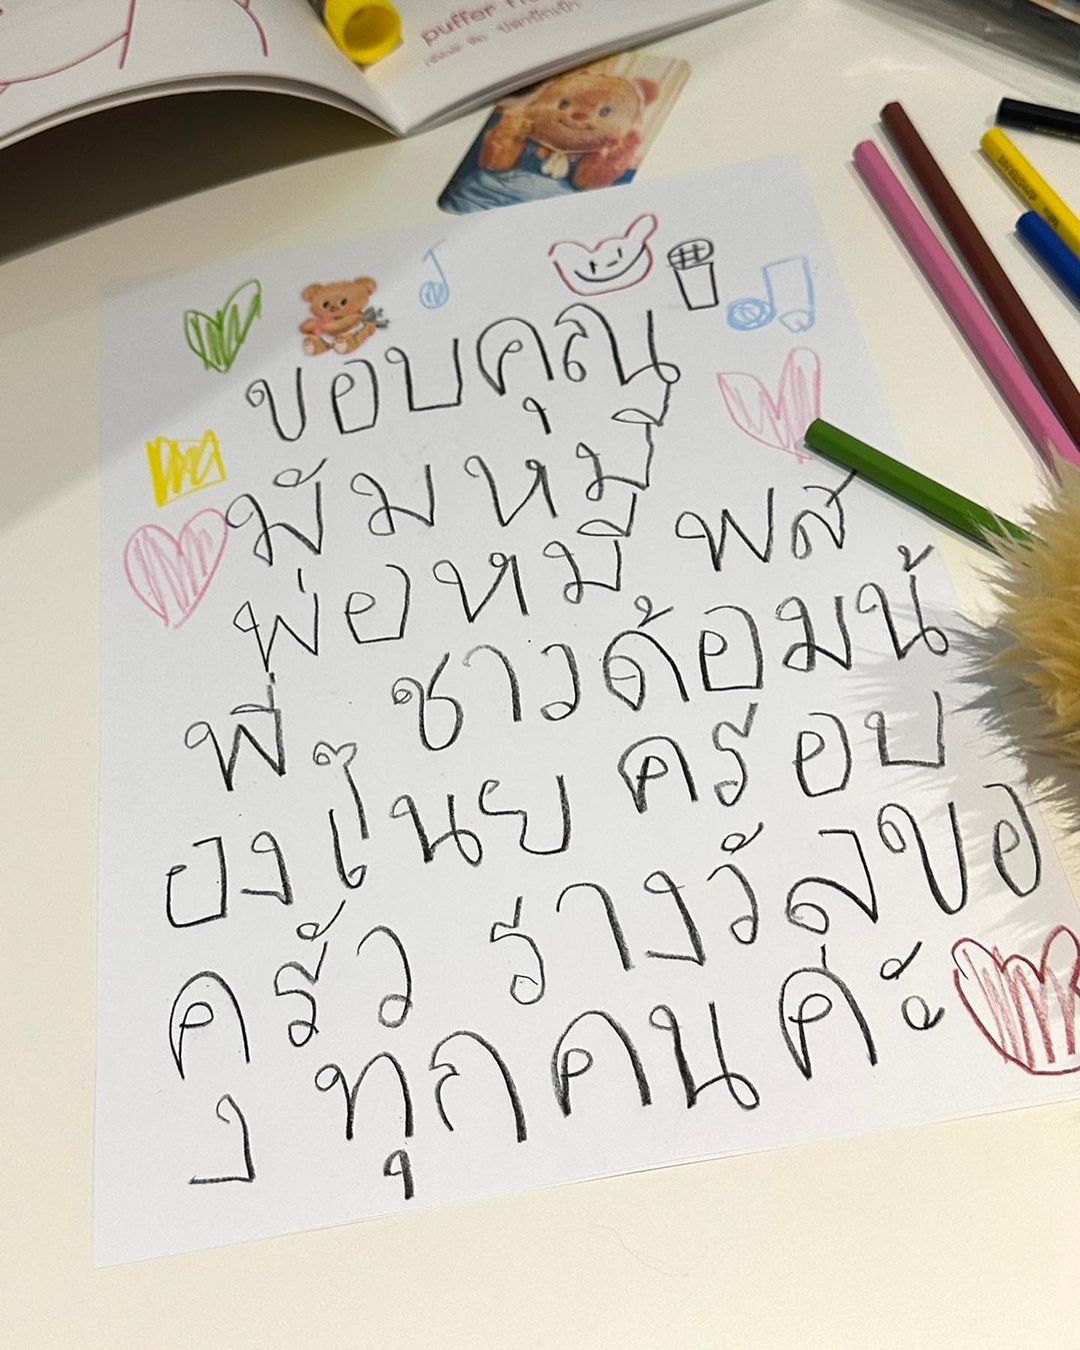 puffer
ขอบคุณ
มัมหมี
พ่อหมี พส
พี่ ชาวด้อมน้
องเนย ครีอบ
ครัว รางวัลขอ
ง ทุกคนค่ะ